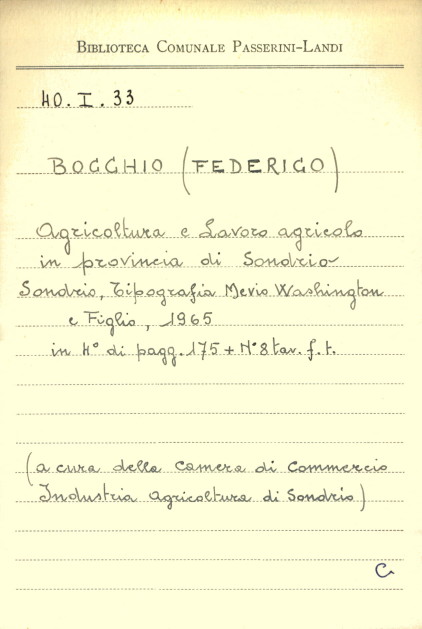 BIBLIOTECA COMUNALE PASSERINI-LANDI
40.I.33
BOCCHIO (FEDERICO)
Agricoltura e Lavoro agricolo
in provincia di Sondrio-
Sondrio, Tipografia Mevio Washington
e Figlio, 1965
in 4° di pagg. 175 + N° 8 tav. f. t.
(a cura della Camera di Commercio
Industria Agricoltura di Sondrio)
C